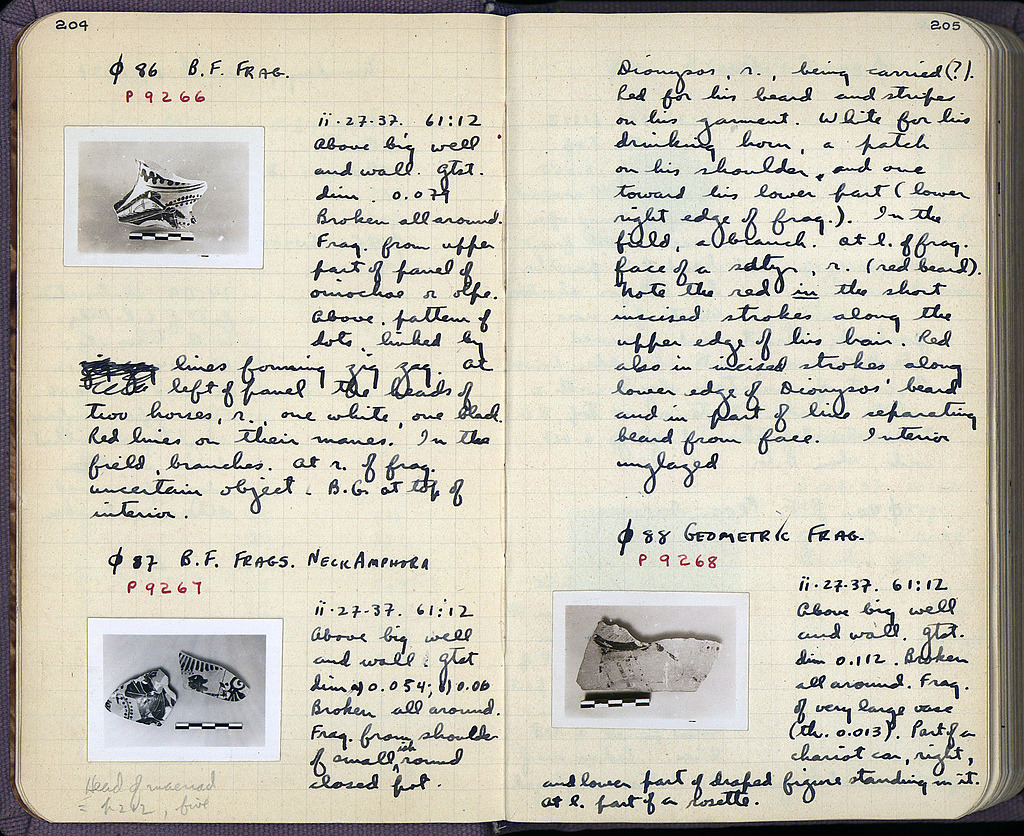 204
ϕ 86 B.F. FRAG.
P 9266
ii·27·37. 61:12
Above big well
and wall. gtst.
dim. 0.079
Broken all around.
Frag. from upper
part of panel of
oinochoe or olpe.
Above, pattern of
dots, linked by
lines forming zig zag. At
left of panel the heads of
two horses, r., one white, one black.
Red lines on their manes. In the
field, branches. At r. of frag.
uncertain object. B.G. at top of
interior.
ϕ 87 B.F. FRAGS. NECK AMPHORA
P 9267
ii·27·37. 61:12
Above big well
and wall. gtst
dim. a) 0.054; b) 0.06
Broken all around.
Frag. from shoulder
of smallish round
closed pot.
Head of maenad
205
Dionysos, r., being carried(?).
Red for his beard and stripes
on his garment. White for his
drinking horn, a patch
on his shoulder, and one
toward his lower part (lower
right edge of frag.). In the
field, a branch. At l. of frag.
face of a satyr, r. (red beard).
Note the red in the short
incised strokes along the
upper edge of his hair. Red
also in incised strokes along
lower edge of Dionysos' beard
and in part of line separating
beard from face. Interior
unglazed
ϕ 88 GEOMETRIC FRAG.
P 9268
ii·27·37. 61:12
Above big well
and wall. gtst.
dim 0.112. Broken
all around. Frag.
of very large vase
(th. 0.013). Part of a
chariot car, right,
and lower part of draped figure standing in it.
At l. part of a rosette.